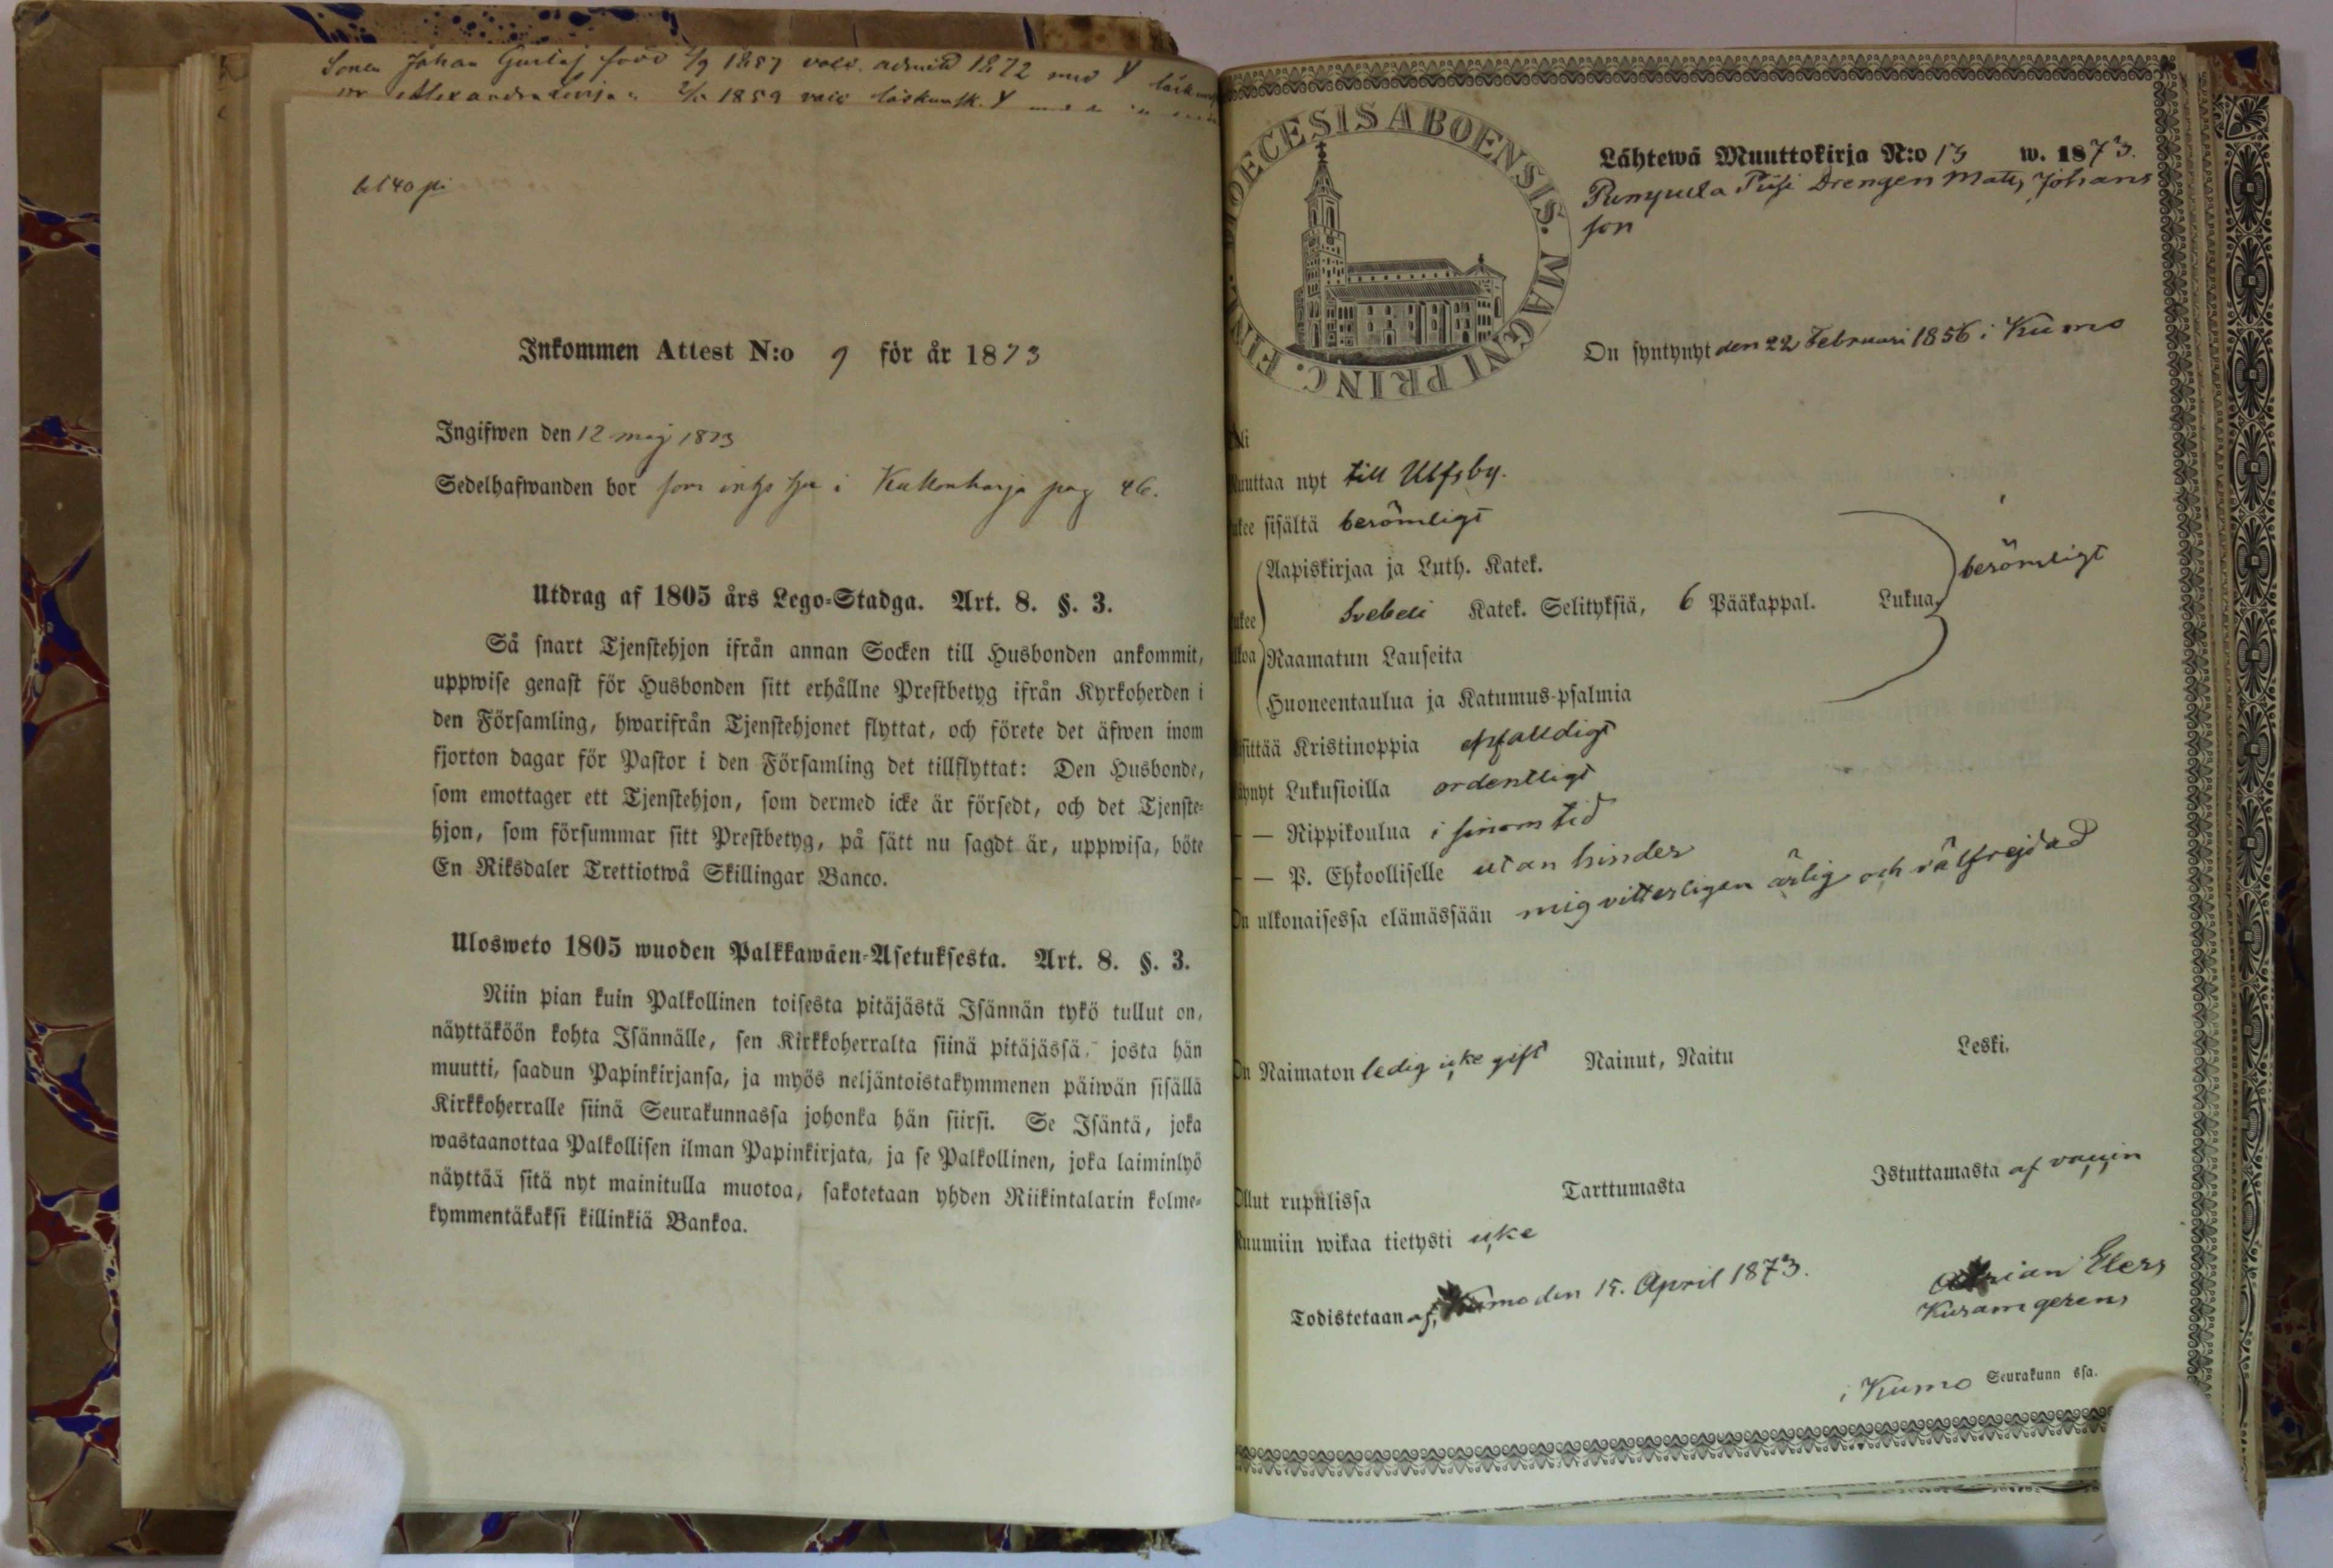 Sonen Johan Gustaf född 1857 vacc. admitt 1872 med
1859 vacc läskunsk.
Inkommen Attest N:o 9 för år 1873
Ingifwen den 12 maj 1873
Sedelhafwanden bor som i pag 46.
Utdrag af 1805 års Lego-Stadga. Art. 8. §. 3.
Så snart Tjenstehjon ifrån annan Socken till Husbonden ankommit,
uppwise genast för Husbonden sitt erhållne Prestbetyg ifrån Kyrkoherden i
den Församling, hwarifrån Tjenstehjonet flyttat, och förete det äfwen inom
fjorton dagar för Pastor i den Församling det tillflyttat: Den Husbonde,
som emottager ett Tjenstehjon, som dermed icke är försedt, och det Tjenste-
hjon, som försummar sitt Prestbetyg, på sätt nu sagdt är, uppwisa, böte
En Riksdaler Trettiotwå Skillingar Banco.
Ulosweto 1805 wuoden Palkkawäen-Asetuksesta. Art. 8. §. 3.
Niin pian kuin Palkollinen toisesta pitäjästä Isännän tykö tullut on,
näyttäköön kohta Isännälle, sen Kirkkoherralta siinä pitäjässä, josta hän
muutti, saadun Papinkirjansa, ja myös neljäntoistakymmenen päiwän sisällä
Kirkkoherralle siinä Seurakunnassa johonka hän siirsi. Se Isäntä, joka
wastaanottaa Palkollisen ilman Papinkirjata, ja se Palkollinen, joka laiminlyö
näyttää sitä nyt mainitulla muotoa, sakotetaan yhden Riikintalarin kolme-
kymmentäkaksi killinkiä Bankoa.
DIOECESIS ABOENSIS. MAGNI PRINC. FINL.
Lähtewä Muuttokirja N:o 13 w. 1873.
Drengen Matts Johans
son
On syntynyt den 22 Februari 1856 i Kumo
Muuttaa nyt till Ulfsby.
Lukee sisältä berömligt
Aapiskirjaa ja Luth. Katek.
Lukee Svebeli Katek. Selityksiä, 6 Pääkappal. Lukua, berömligt
ulkoa Raamatun Lauseita
Huoneentaulua ja Katumus-psalmia
Käsittää Kristinoppia enfalldigt
Käynyt Lukusioilla ordentligt
— — Rippikoulua i sinom tid
— — P. Ehtoolliselle utan hinder
On ulkonaisessa elämässään mig vitterligen ärlig och välfrejdad
On Naimaton ledig icke gift Nainut, Naitu Leski.
Ollut rupulissa Tarttumasta Istuttamasta af vaccin
Ruumiin wikaa tietysti icke
Todistetaan af, Kumo den 15. April 1873. Adrian Elers
i Kumo Seurakunn ssa.